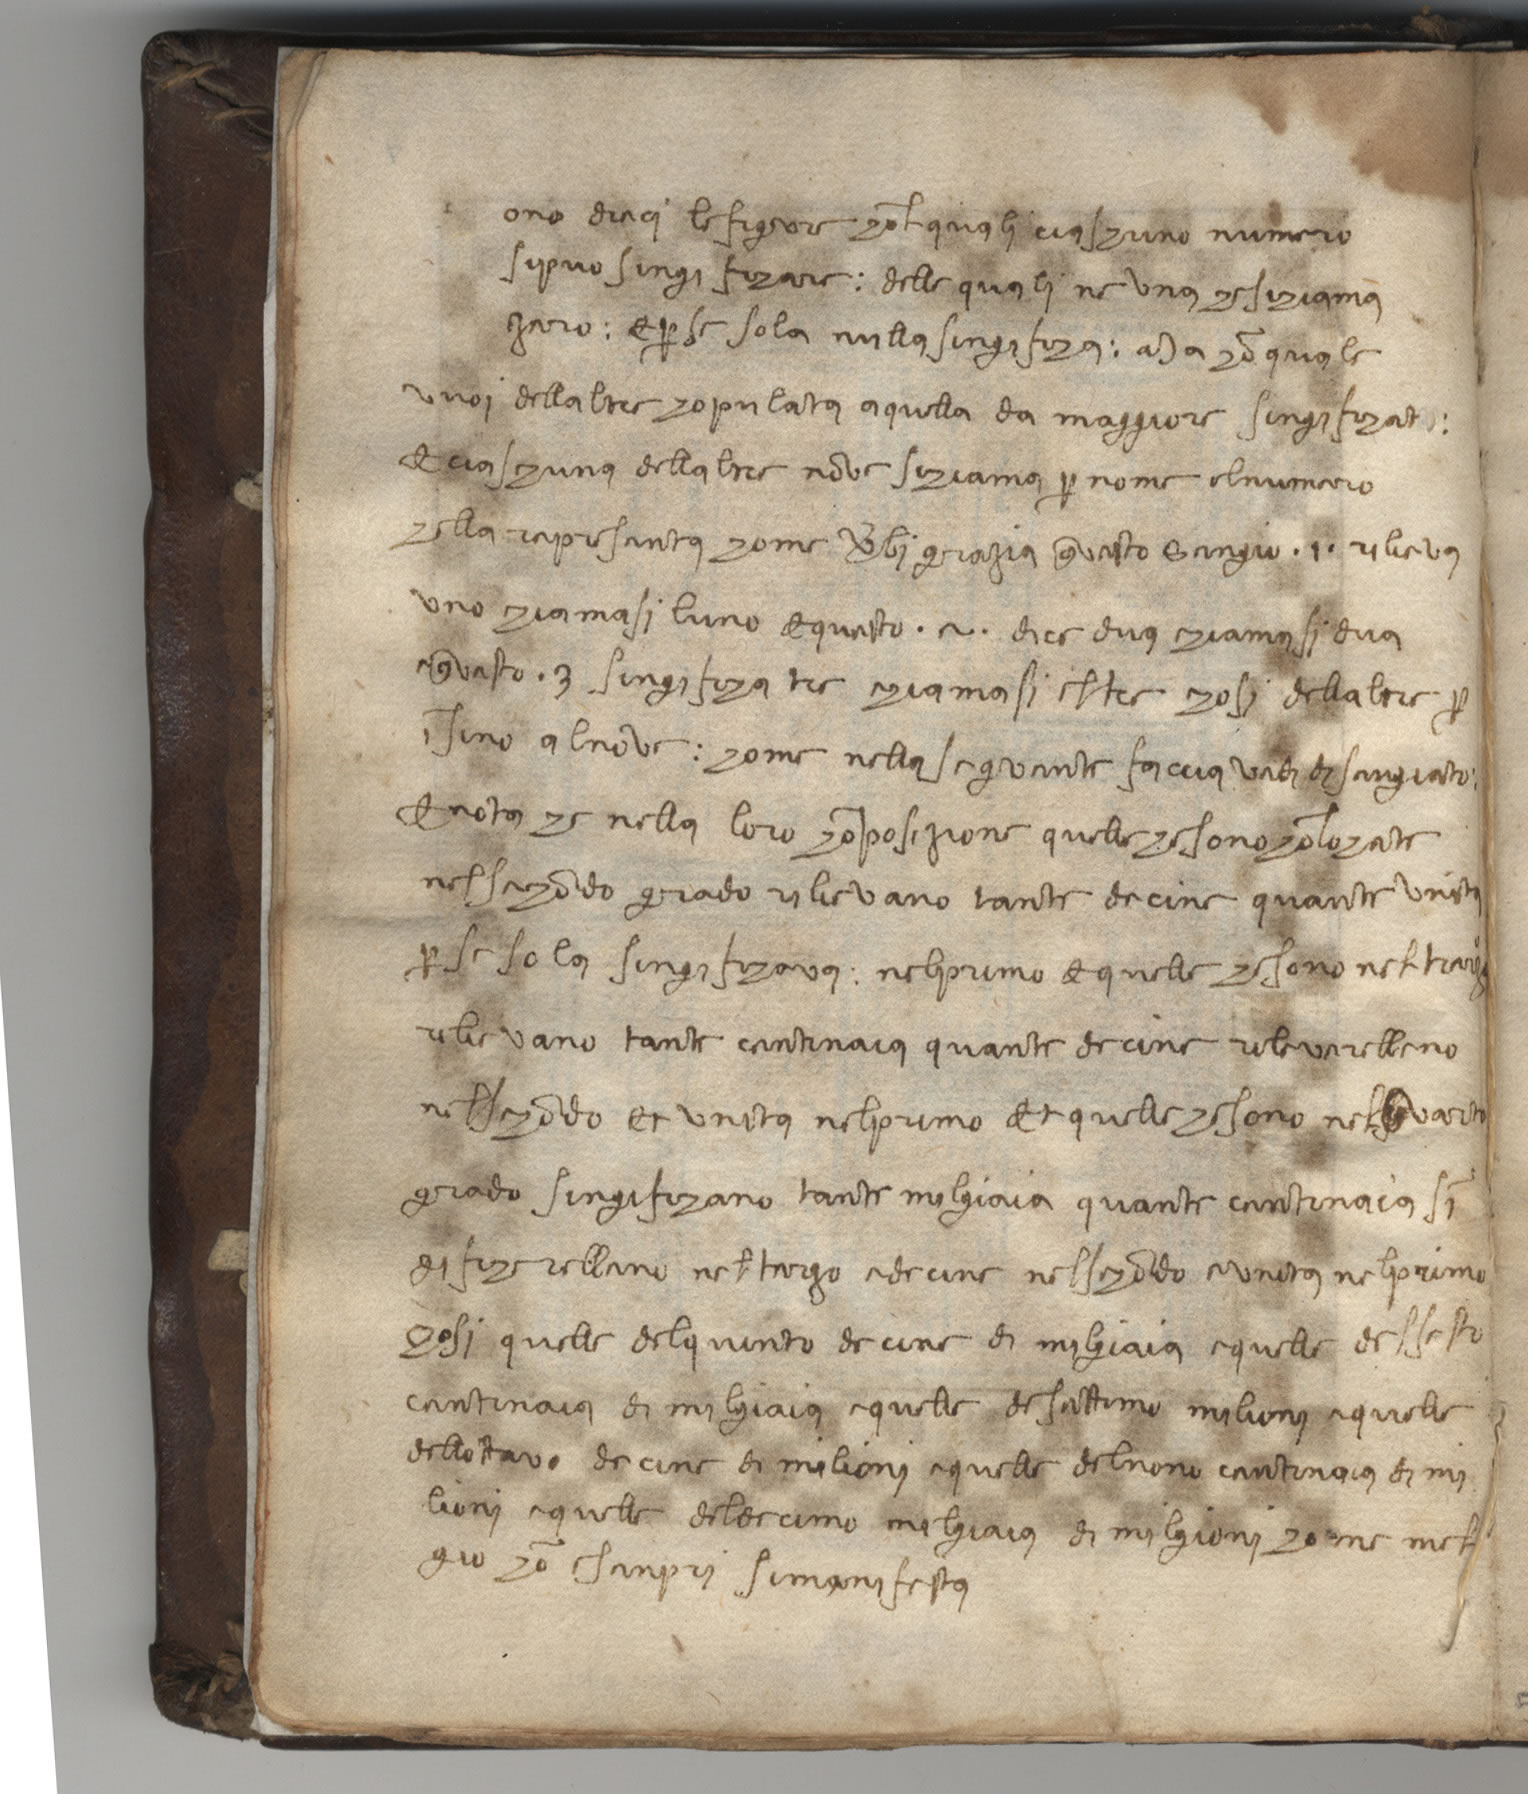 ono dieci le figure chol quali ciaschuno numero
si puo singifichare : delle quali ne una che si chiama
zero : et per se sola nulla singificha : ma chon quale
vuoi dellaltre chopulata a quella da maggiore singifichato :
et ciaschuna dellaltre nove si chiama per nome el numero
chella representa chome verbi grazia questo sengio . 1 . rilieva
uno chiamasi luno et questo . 2 . dice dua chiamasi dua
e questo . 3 singificha tre chiamasi el tre chosi dellaltre per
insino al nove : chome nella seguente faccia vedi disengiato :
et nota che nella loro chonposizione quelle che sono chollochate
nel sechondo grado rilievano tante decine quante unita
per se sola singifichava : nel primo et quelle che sono nel terzo
rilievano tante centinaia quante decine rileverebbeno
nel sechondo et unita nel primo et quelle che sono nel quarto
grado singifichano tante migliaia quante centinaia sin
gificherebbeno nel terzo e decine nel sechondo e unita nel primo
chosi quelle del quinto decine di migliaia e quelle del sesto
centinaia di migliaia e quelle del settimo milioni e quelle
dellottavo decine di milioni e quelle del nono centinaia di mi
lioni e quelle del decimo migliaia di miglioni chome mel
gio chon esenpri si manifesta